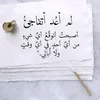 لم أعد أتفاجئ
أصبحت أتوقع أي شيء
من أي أحد في أي وقت
ولا أبالي.